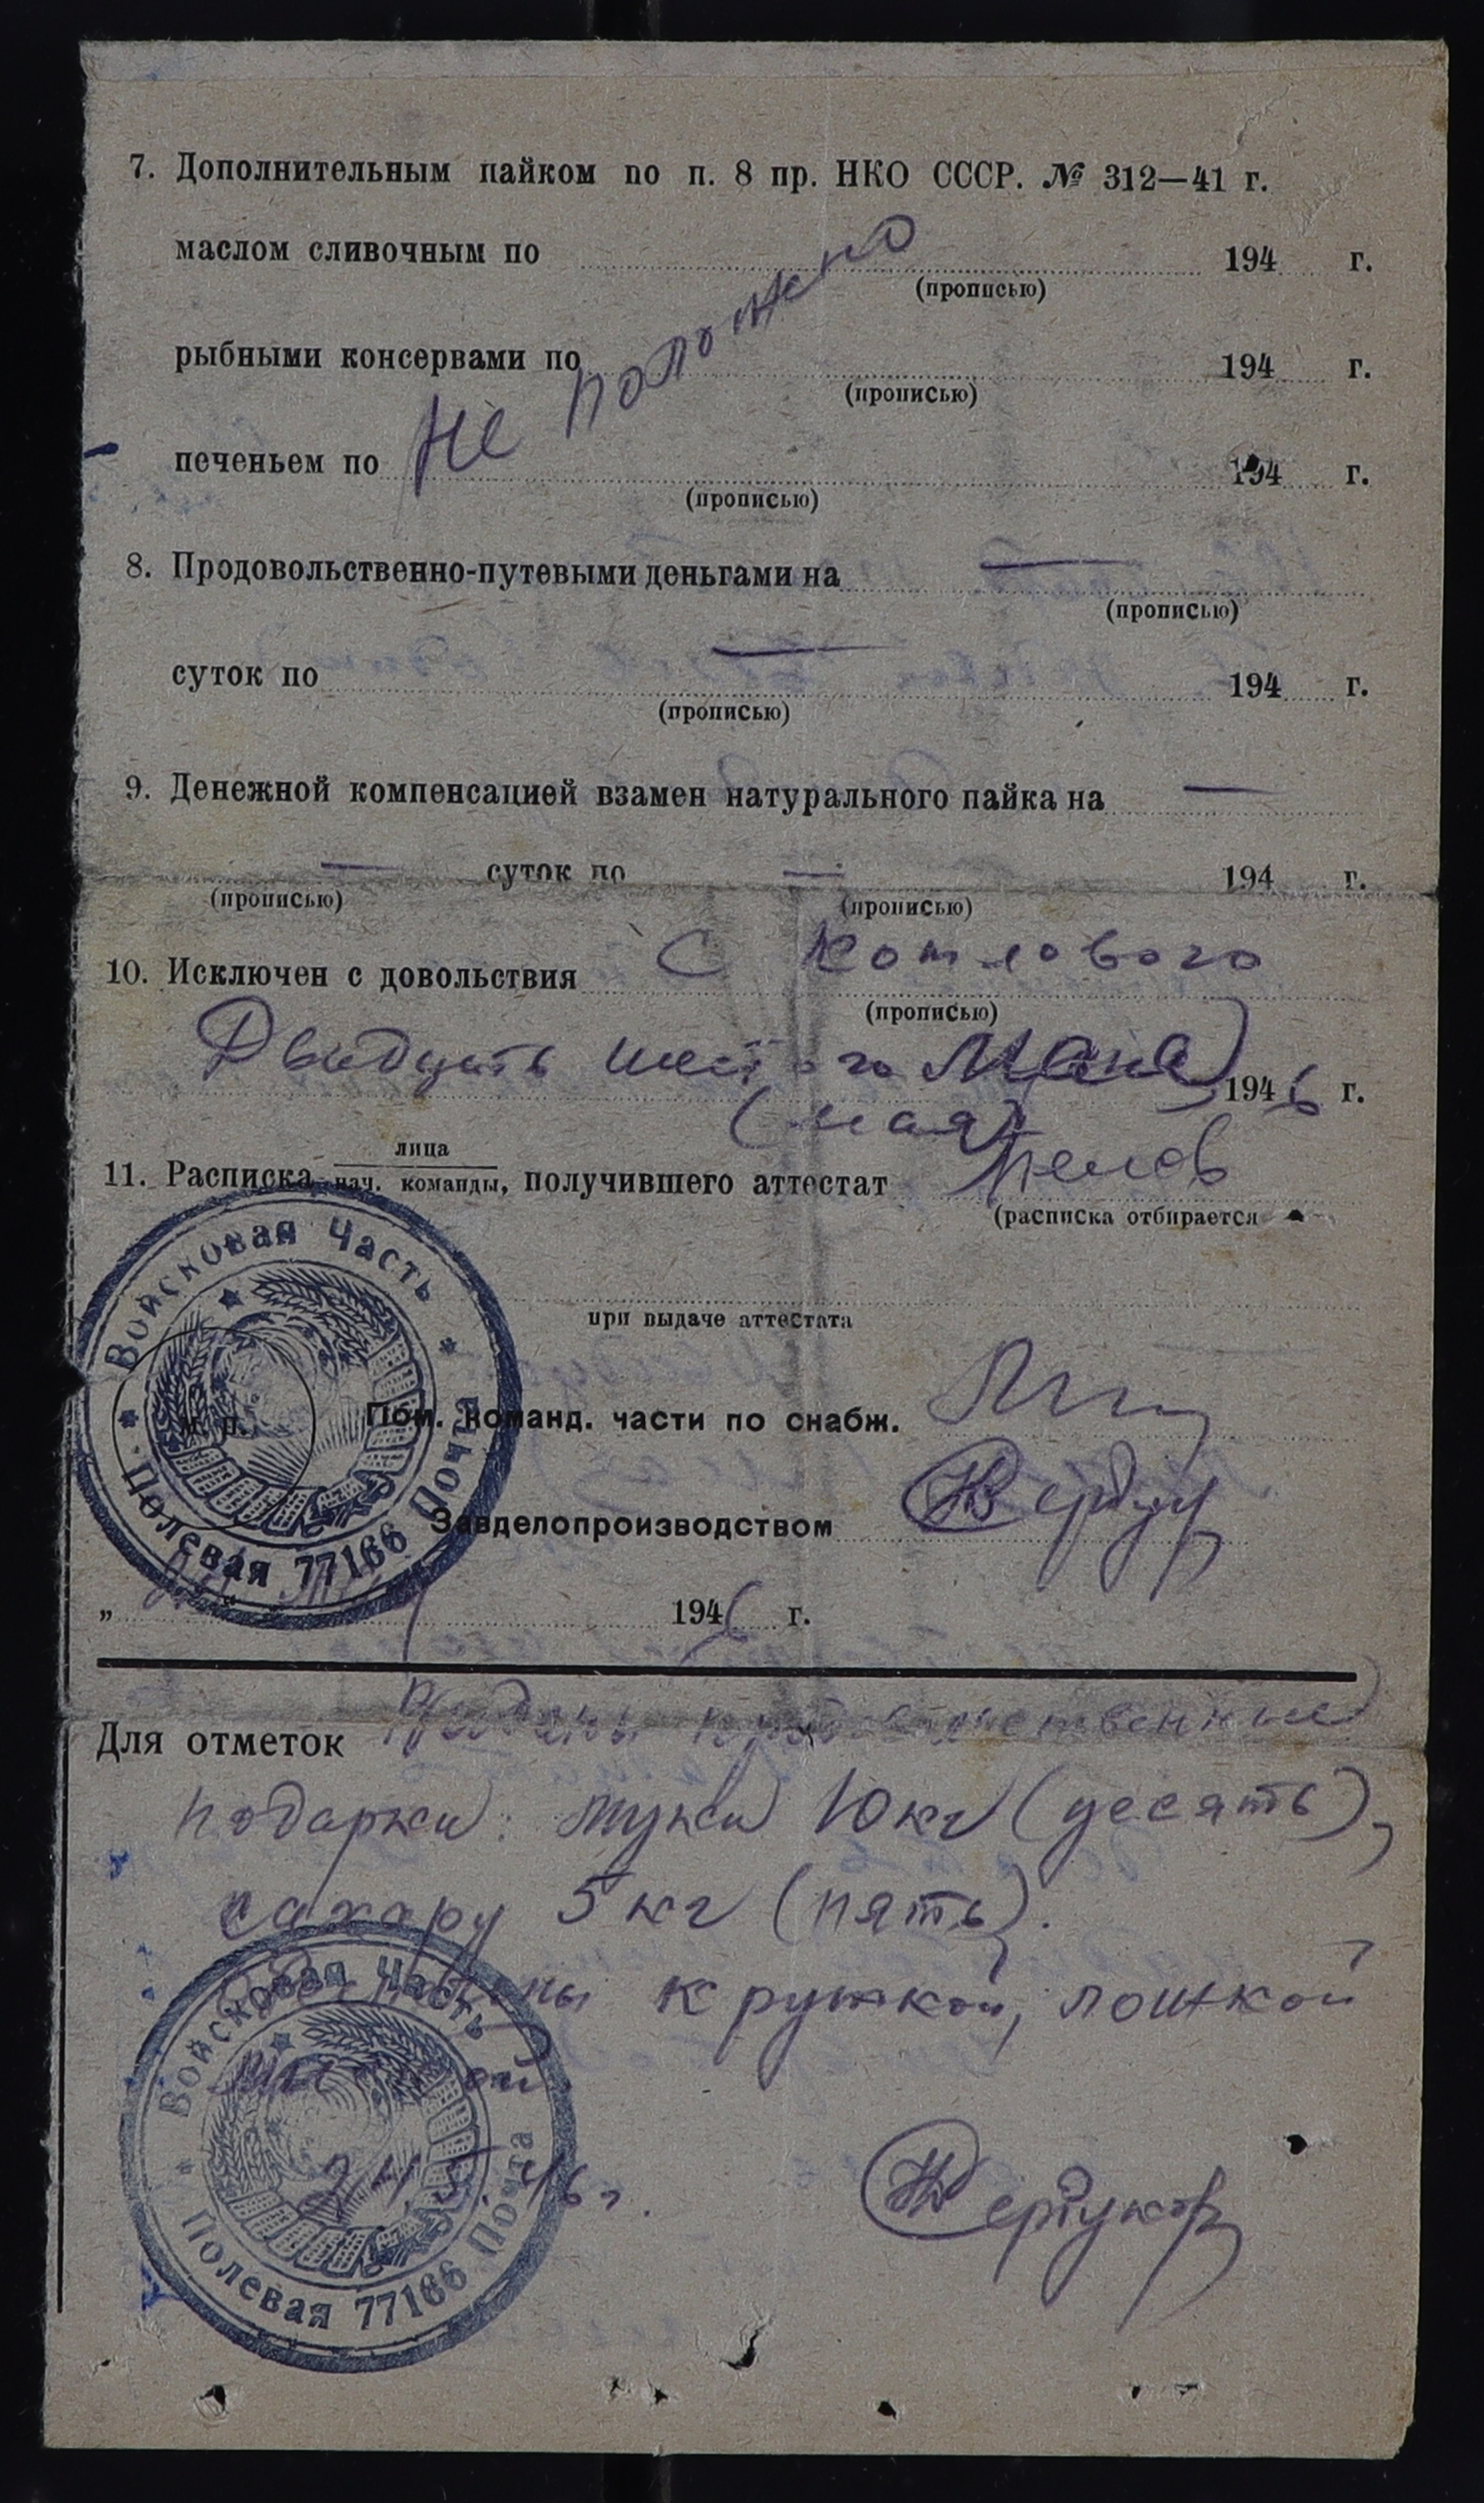 7. Дополнительным пайком по п. 8 пр. НКО СССР. № 312—41 г.
маслом сливочным по 194 г.
(прописью)
рыбными консервами по 194 г.
(прописью)
печеньем по 194 г.
(прописью)
Не положено
8. Продовольственно-путевыми деньгами на —
(прописью)
суток по — 194 г.
(прописью)
9. Денежной компенсацией взамен натурального пайка на —
— суток по — 194 г.
(прописью) (прописью)
10. Исключен с довольствия С котлового
(прописью)
Двадцать шестого Мая 1946 г.
(мая)
11. Расписка лица
нач. команды, получившего аттестат
(расписка отбирается
при выдаче аттестата
Войсковая Часть
Полевая Почта 77166
М. П.
Пом. команд. части по снабж.
Завделопроизводством
„ “ 1946 г.
Для отметок Выданы продовольственные
подарки: муки 10 кг (десять),
сахару 5 кг (пять).
кружкой, ложкой
Войсковая Часть
Полевая Почта 77166
24.5.46 г.